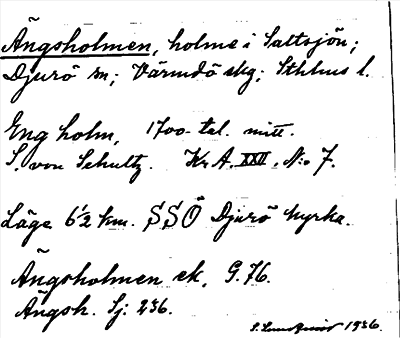 Ängsholmen, holme i Saltsjön;
Djurö sn; Värmdö skg; Sthlms l.
Eng holm, 1700-tal. mitt.
S. von Schultz. Kr. A. XXII. No 7.
Läge 6 1/2 km. SSÖ Djurö kyrka.
Ängsholmen ek. G.76.
Ängsh. Sj: 236.
1936.